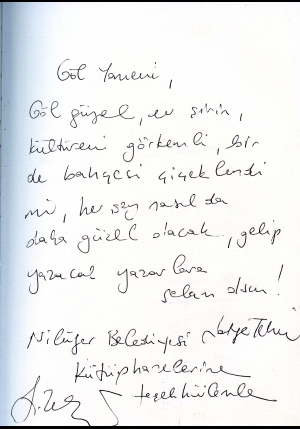 Göl Yazıevi,
Göl güzel, ev şirin,
kültüreni görkemli, bir
de bahçesi çiçeklendi
mi, her şey nasıl da
daha güzel olacak, gelip
yazacak yazarlara
selam olsun!
Nilüfer Belediyesi
Kütüphanelerine
teşekkürlerle